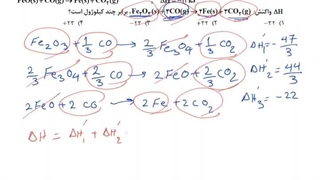 FeO(s)+CO(g)→Fe(s)+CO₂(g)
ΔH واکنش Fe₂O₃(s)+3CO(g)→2Fe(s)+3CO₂(g) برابر چند کیلوژول است؟
Fe₂O₃ + 1/3 CO → 2/3 Fe₃O₄ + 1/3 CO₂ ΔH₁′ = -47/3
2/3 Fe₃O₄ + 2/3 CO → 2FeO + 2/3 CO₂ ΔH₂′ = 44/3
2FeO + 2CO → 2Fe + 2CO₂ ΔH₃′ = -22
ΔH = ΔH₁′ + ΔH₂′